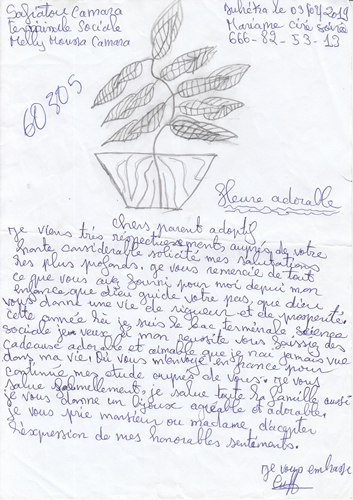 Safiatou Camara
Terminale Sociale
Melly Moussa Camara
Dubréka le 03/07/2019
Mariame ciré soirée
666-82-53-13
60305
fleure adorable
Chers parent adoptif
Je viens très respectueusements auprès de votre
honte considérable solicité mes salutations
les plus profonds. Je vous remercie de tout
ce que vous avez fourni pour moi depuis mon
enfance, que dieu guide votre pas, que dieu
vous donne une vie de rigueur et de prosperité.
cette année ici je suis le bac terminale science
sociale je veux que mon reposite vous soussiez des
cadeause adorable et aimable que je n'ai jamais vue
dans ma vie. Où vous m'envoyé en france pour
continué mes etude auprès de vous. Je vous
salue je salue toute la famille aussi
je vous donne un bijoux agréable et adorable.
je vous prie monsieur ou madame d'accepter
l'éxpression de mes honorables sentiments.
je vous embrasse